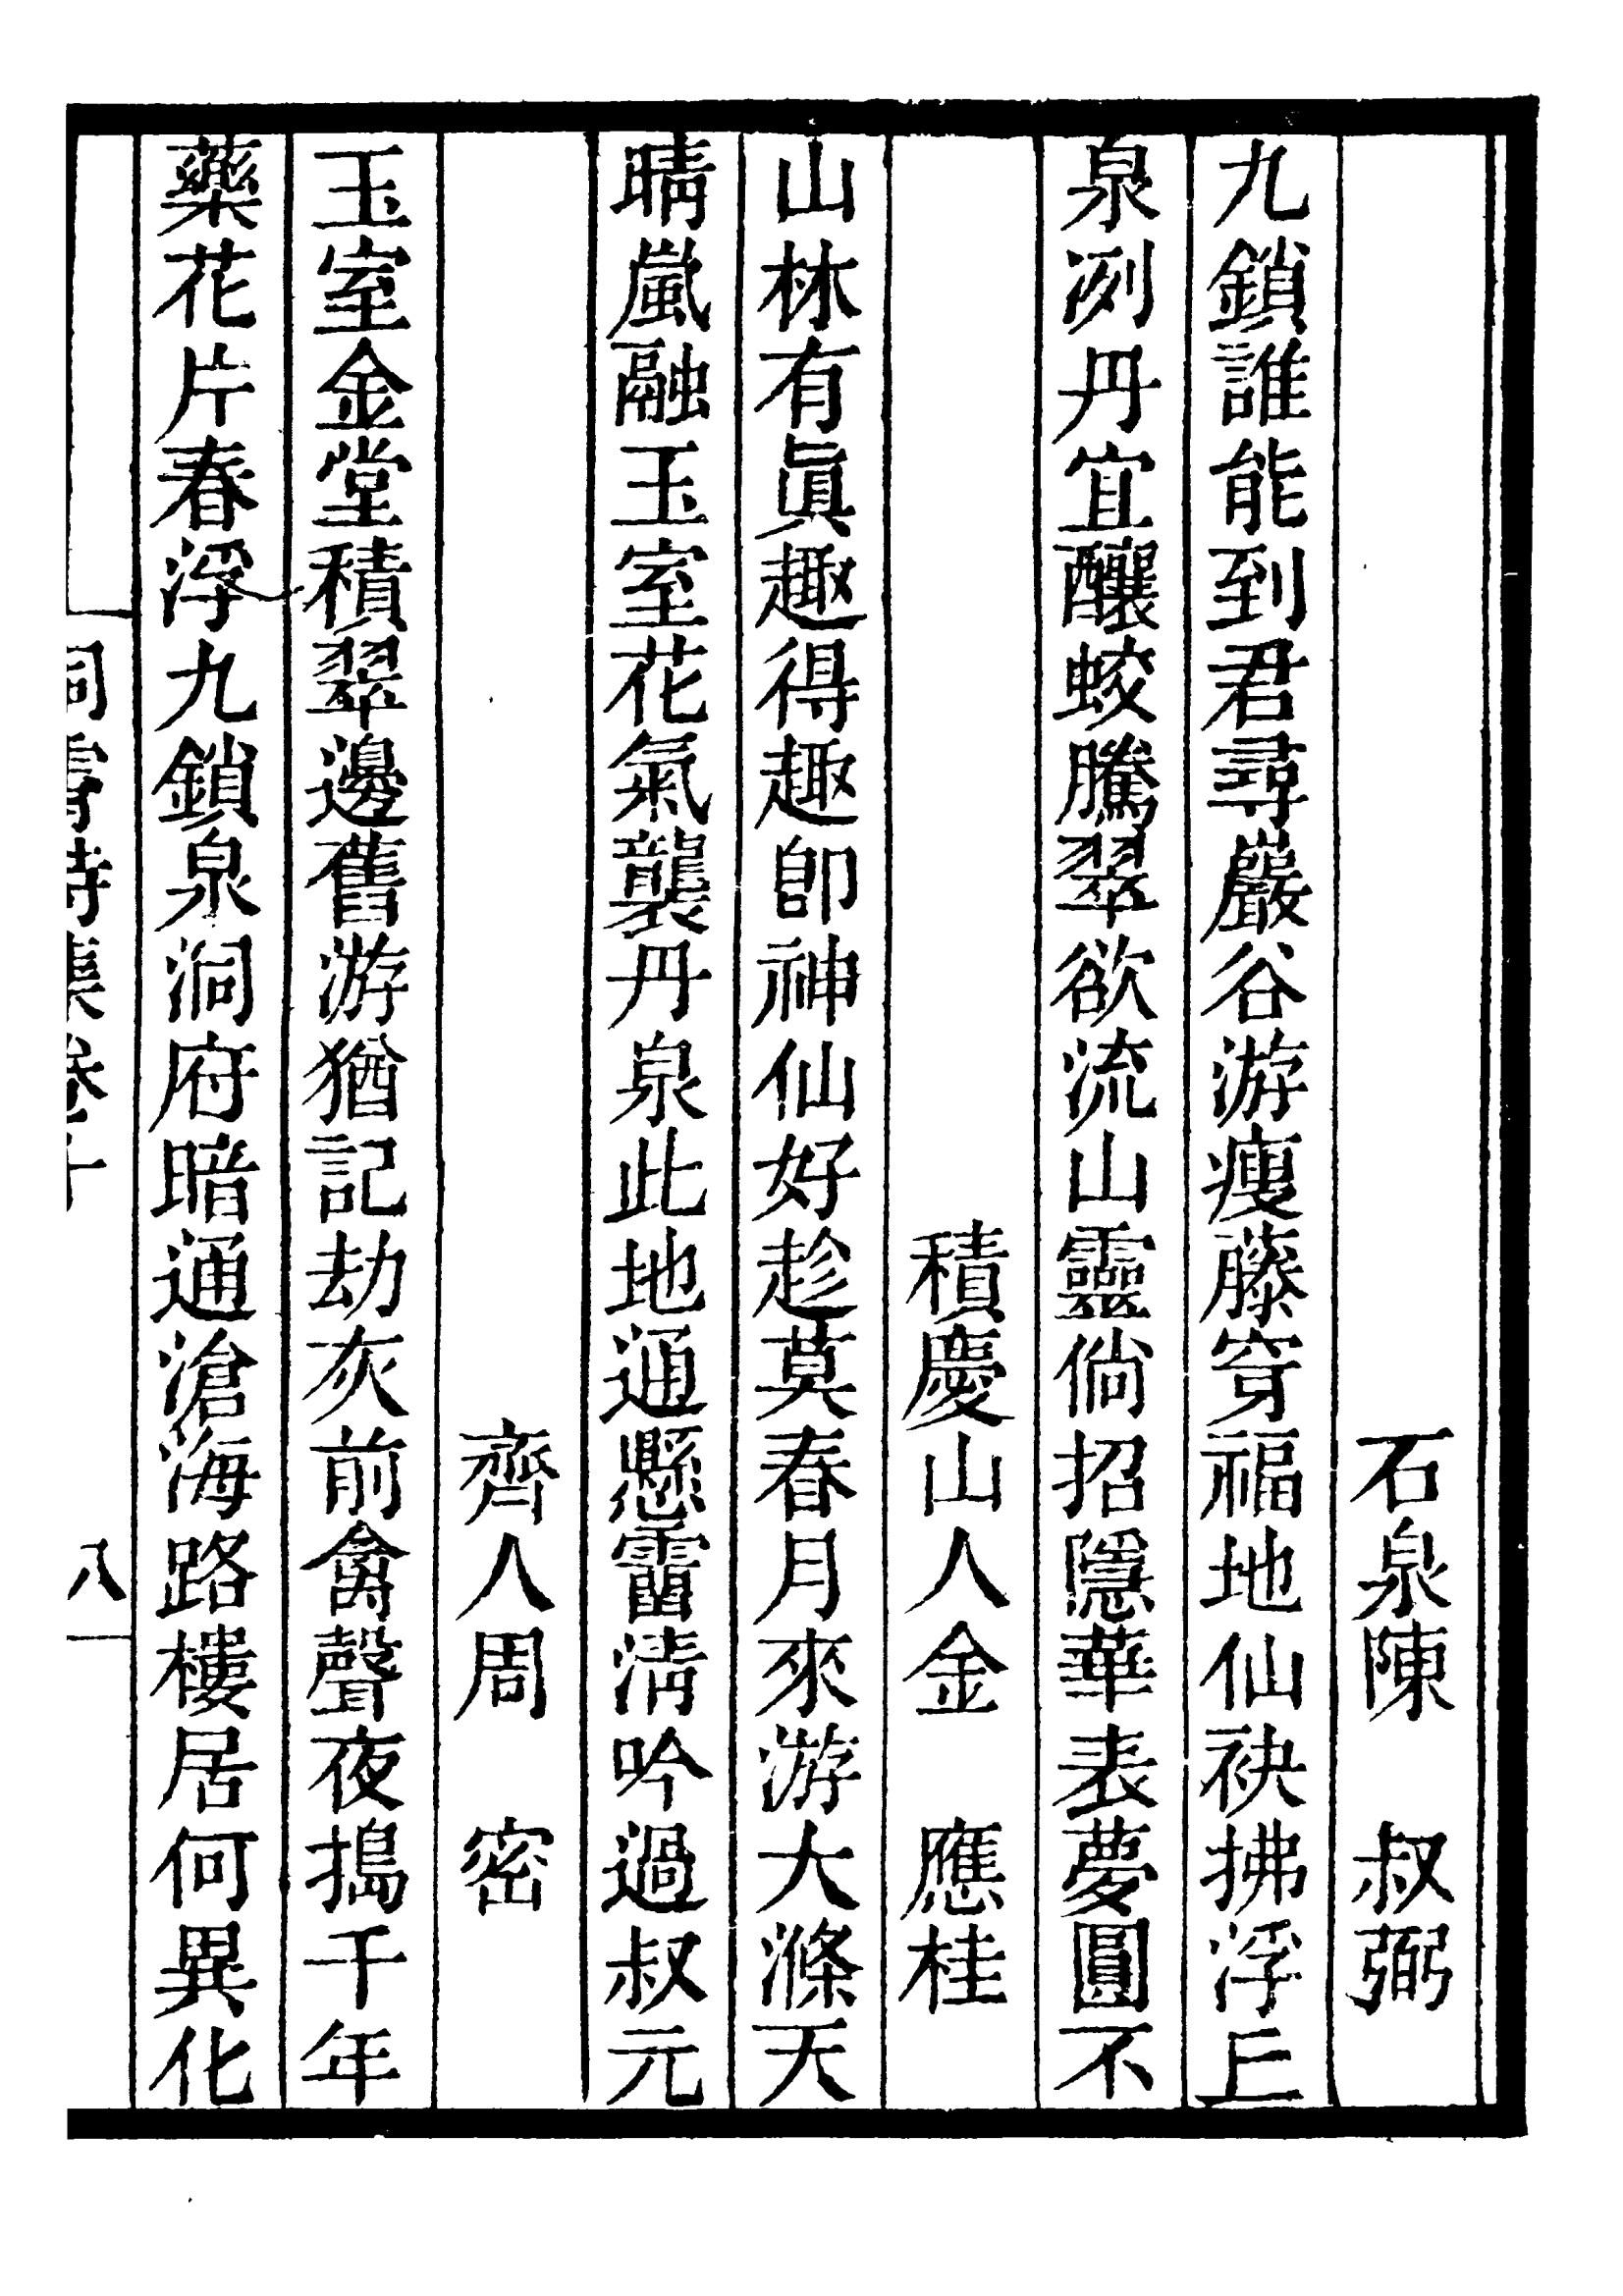 石泉陳　叔弼
九鎖誰能到君尋巖谷游瘦藤穿福地仙袂拂浮丘
泉冽丹宜釀蛟騰翠欲流山靈倘招隱華表夢圓不
積慶山人金　應桂
山林有眞趣得趣卽神仙好趁莫春月來游大滌天
晴嵐融玉室花氣襲丹泉此地通懸霤淸吟過叔元
齊人周　密
玉室金堂積翠邊舊游猶記劫灰前禽聲夜搗千年
藥花片春浮九鎖泉洞府暗通滄海路樓居何異化
洞霄詩集卷十　八